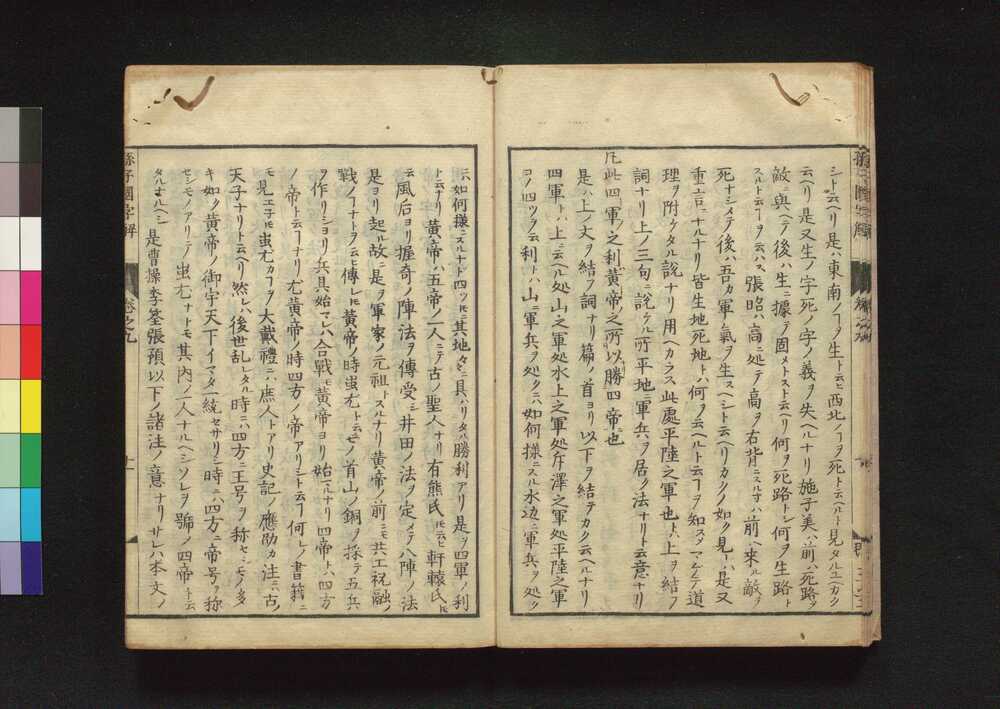 シト云ヘリ是ハ東南ノヿヲ生ト云ヒ西北ノヿヲ死ト云ヘルト見タルユヘカク
云ヘリ是又生ノ字死ノ字ノ義ヲ失ヘルナリ施子美ハ前ハ死路ヲ
敵ニ與ヘテ後ハ生ニ據テ固メトスト云ヘリ何ヲ死路トシ何ヲ生路ト
スルト云ヿヲ云ハス張昭ハ高ニ処テ高ヲ右背ニスル寸ハ前ヘ来ル敵ヲ
死ナシメテ後ハ吾カ軍ノ氣ヲ生スヘシト云ヘリカクノ如ク見レハ是又
重言ニナルナリ皆生地死地トハ何ヲ云ヘルト云ヿヲ知スノマヽニテ道
理ヲ附ケタル説ナリ用ヘカラス此處平陸之軍也トハ上ヲ結フ
詞ナリ上ノ三句ニ説ケル所平地ニ軍兵ヲ居ク法ナリト云意ナリ
凡此四軍之利黄帝之所以勝四帝也
是ハ上ノ文ヲ結フ詞ナリ篇ノ首ヨリ以下ヲ結テカク云ヘルナリ
四軍トハ上ニ云ヘル処山之軍処水上之軍処斥澤之軍処平陸之軍
コノ四ツヲ云利トハ山ニ軍兵ヲ処クニハ如何様ニスル水边ニ軍兵ヲ処ク
ニハ如何様ニスルナト四ツ𪜈ニ其地々ニ具ハリタル勝利アリ是ヲ四軍ノ利
ト云ナリ黄帝ハ五帝ノ一人ニテ古ノ聖人ナリ有熊氏𪜈云ヒ軒轅氏𪜈
云風后ヨリ握奇ノ陣法ヲ傳受シ井田ノ法ヲ定メテ八陣ノ法
是ヨリ起ル故ニ是ヲ軍家ノ元祖トスルナリ黄帝ノ前ニモ共工祝融ノ
戰ノヿナトヲ云ヒ傳レ𪜈黄帝ノ時蚩尤ト云モノ首山ノ銅ヲ採テ五兵
ヲ作リショリ兵具始マレハ合戰モ黄帝ヨリ始マルナリ四帝トハ四方
ノ帝ト云ヿナリ尤黄帝ノ時四方ノ帝アリシト云ヿ何レノ書籍ニ
モ見エ子𪜈蚩尤カヿヲ大戴禮ニハ庶人トアリ史記ノ應劭カ注ニハ古ノ
天子ナリト云ヘリ然レハ後世乱レタル時ニハ四方ニ王号ヲ称セシモノ多
キ如ク黄帝ノ御宇天下イマタ一統セサリシ時ニハ四方ニ帝号ヲ称
セシモノアリテ蚩尤ナトモ其内ノ一人ナルヘシソレヲ號シテ四帝ト云
タルナルヘシ是曹操李筌張預以下ノ諸注ノ意ナリサレハ本文ノ
孫子國字解
卷之九
十一